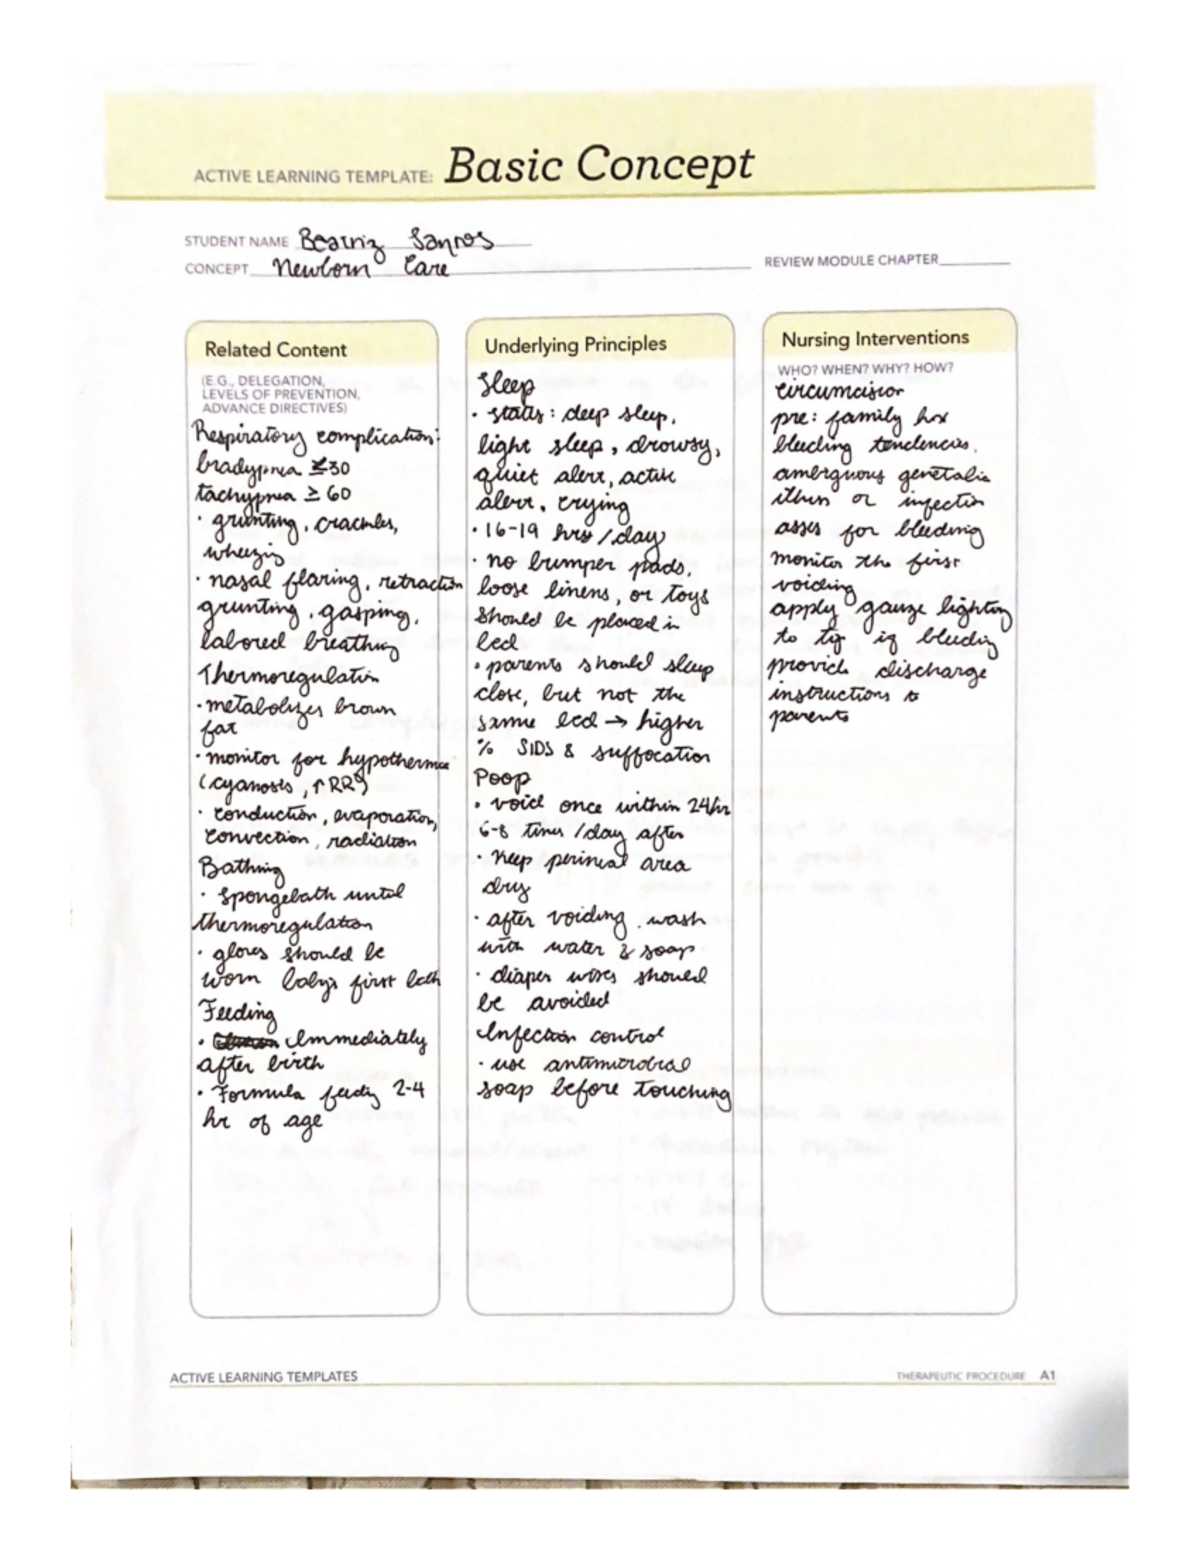 ACTIVE LEARNING TEMPLATE: Basic Concept
STUDENT NAME Beatriz Santos
CONCEPT Newborn Care
REVIEW MODULE CHAPTER
Related Content
(E.G., DELEGATION,
LEVELS OF PREVENTION,
ADVANCE DIRECTIVES)
Respiratory complication:
bradypnea ≤30
tachypnea ≥ 60
· grunting, crackles,
wheezing
· nasal flaring, retraction
grunting, gasping,
labored breathing
Thermoregulation
· metabolizes brown
fat
· monitor for hypothermia
(cyanosis, ↑ RR)
· conduction, evaporation,
convection, radiation
Bathing
· Spongebath until
thermoregulation
· gloves should be
worn baby's first bath
Feeding
· Immediately
after birth
· Formula feeding 2-4
hr of age
Underlying Principles
Sleep
· states: deep sleep,
light sleep, drowsy,
quiet alert, active
alert, crying
· 16-19 hrs/day
· no bumper pads,
loose linens, or toys
should be placed in
bed
· parents should sleep
close, but not the
same bed → higher
% SIDS & suffocation
Poop
· void once within 24hr
6-8 times/day after
· keep perineal area
dry
· after voiding, wash
with water & soap
· diaper wipes should
be avoided
Infection control
· use antimicrobial
soap before touching
Nursing Interventions
WHO? WHEN? WHY? HOW?
circumcision
pre: family hx
bleeding tendencies,
ambiguous genetalia
or infection
asses for bleeding
monitor the first
voiding
apply gauze lighting
to tip if bleeding
provide discharge
instructions to
parents
ACTIVE LEARNING TEMPLATES
THERAPEUTIC PROCEDURE A1